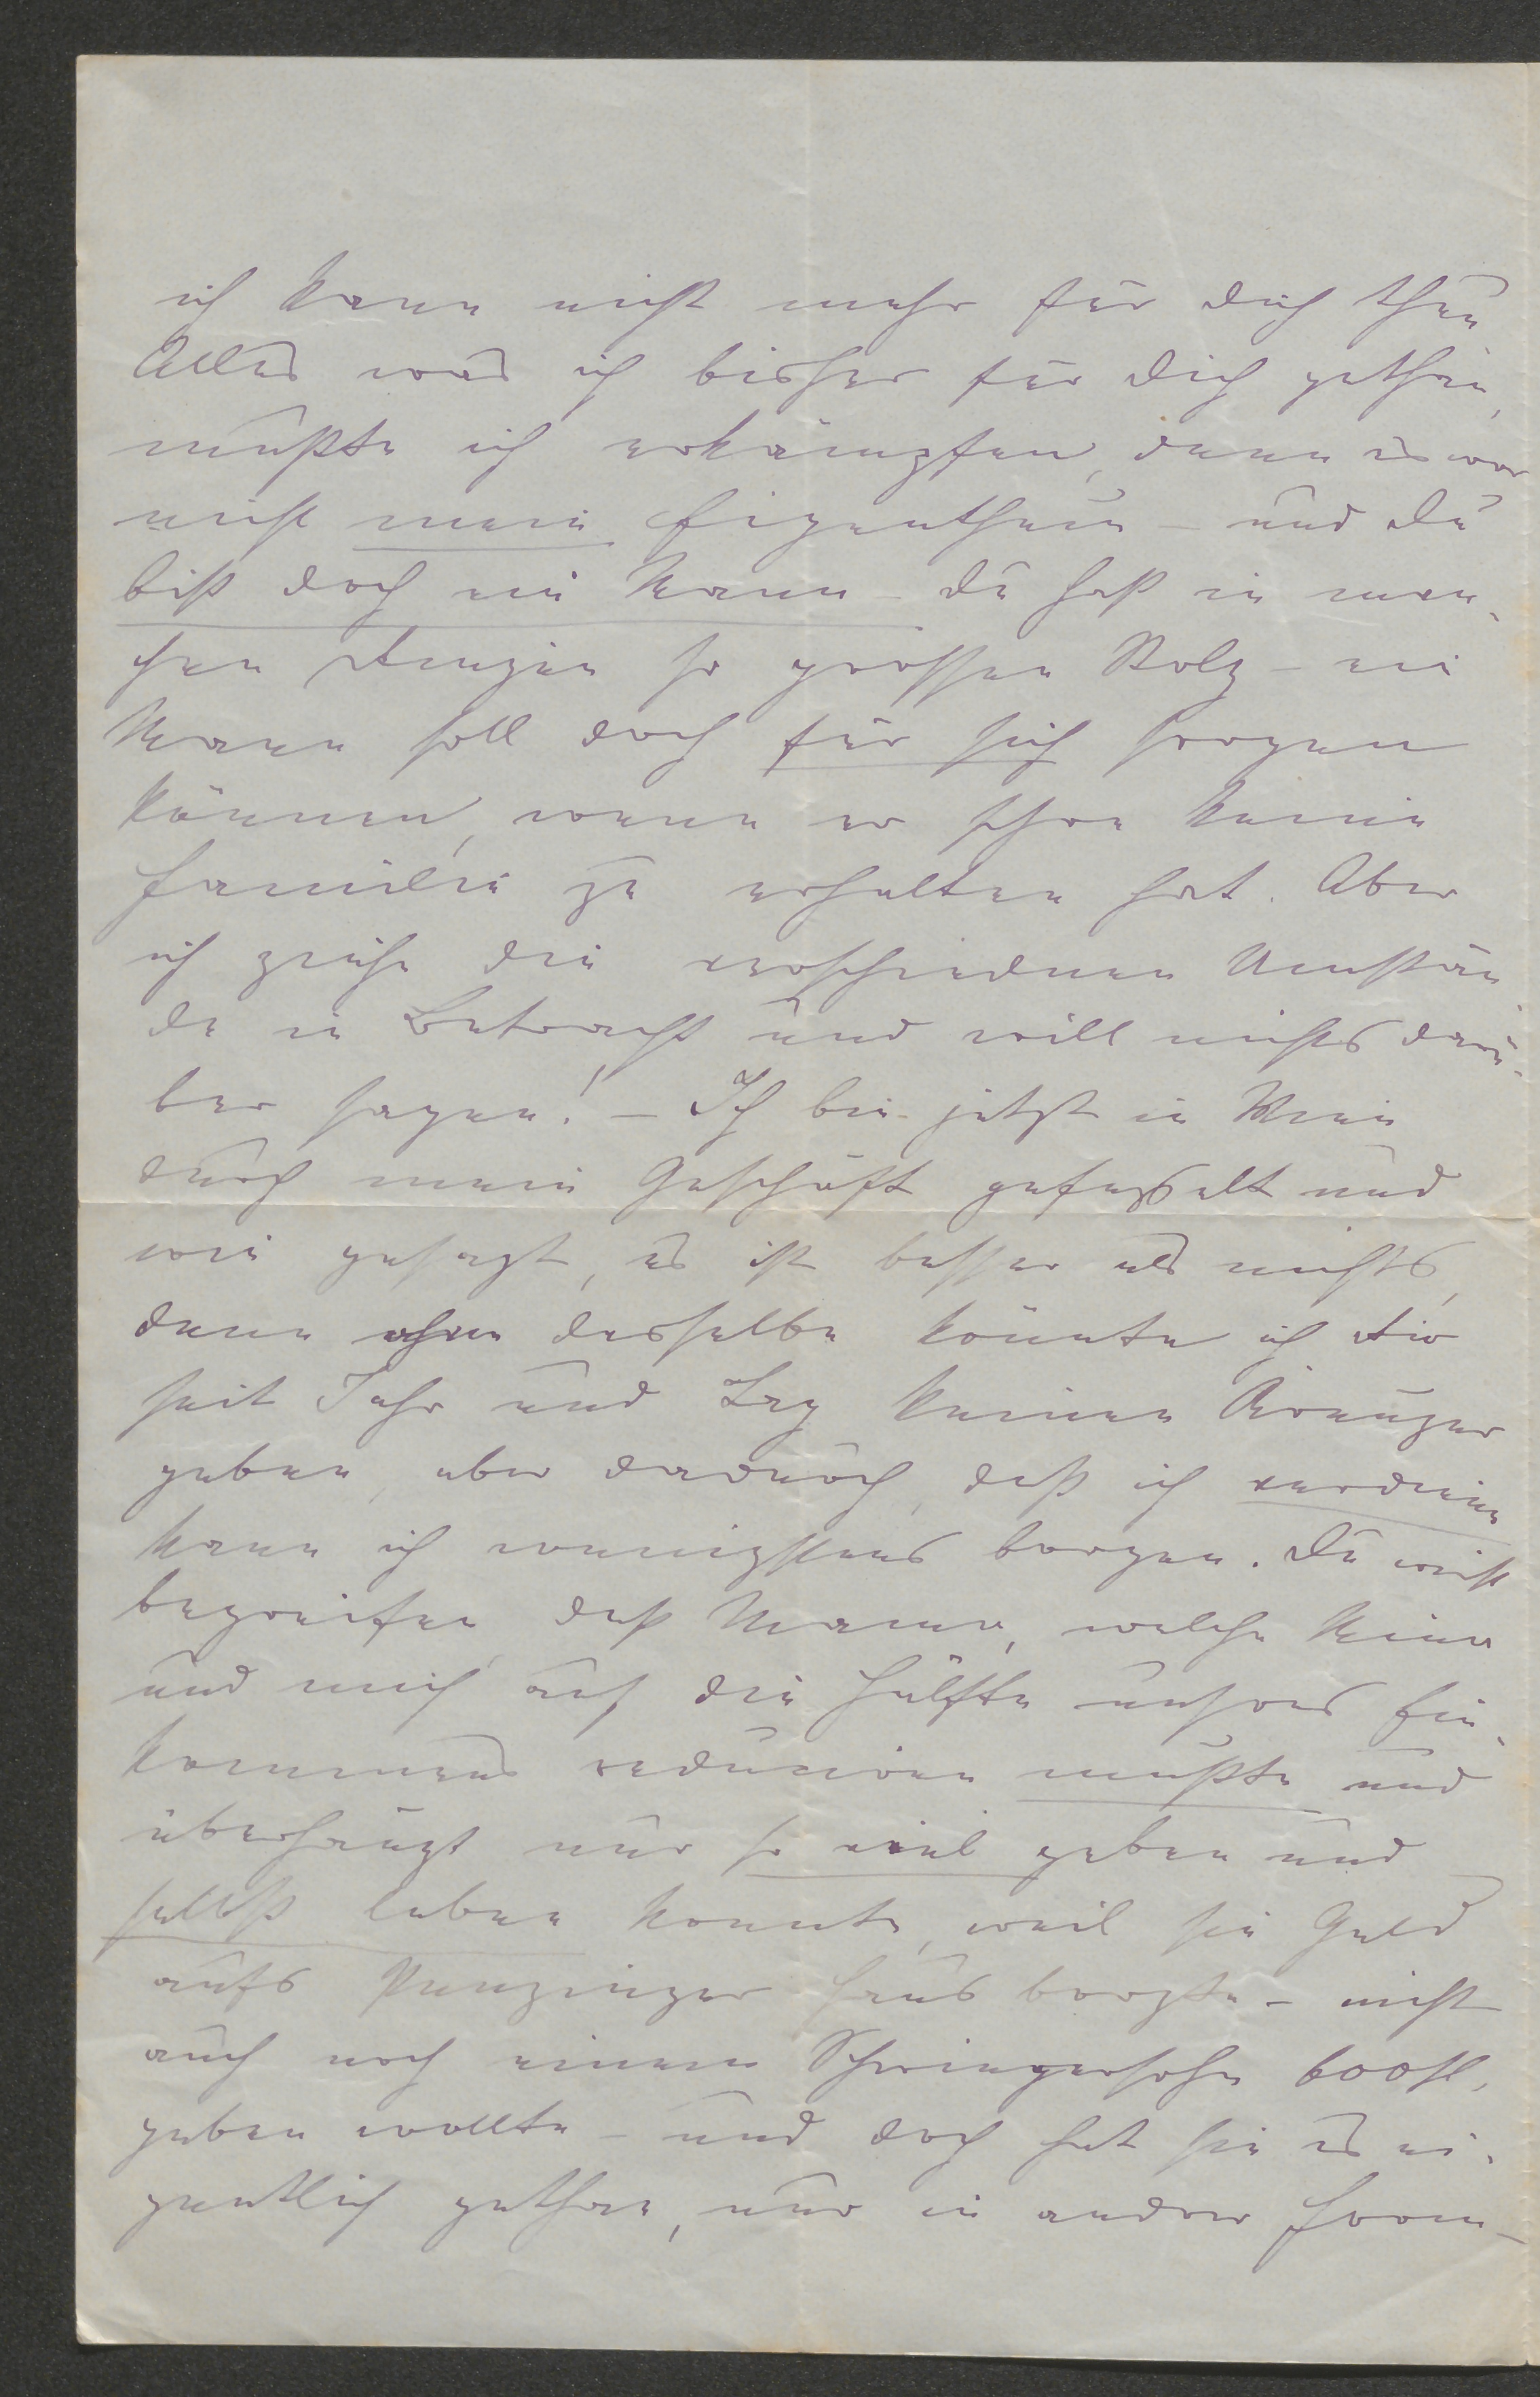 ich kann nicht mehr für dich thun
Alles was ich bisher für dich gethan,
mußte ich erkämpfen, denn es war
nicht mein Eigenthum – und du
bist doch ein Mann – du hast in man-
chen Dingen so grossen Stolz – ein
Mann soll doch für sich sorgen
können, wenn er schon keine
Familie zu erhalten hat. Aber
ich ziehe die verschiednen Umstän-
de in Betracht und will nichts darü-
ber sagen! – Ich bin jetzt in Wien
durch mein Geschäft gefesselt und
wie gesagt, es ist besser als nichts,
denn ohne desselbe könnte ich dir
seit Jahr und Tag keinen Kreuzer
geben, aber dadurch, daß ich verdiene
kann ich wenigstens borgen. Du wirst
begreifen, daß Mama, welche Mina
und mich auf die Hälfte unsres Ein-
kommens reduciren mußte und
überhaupt nur so viel geben und
selbst leben konnte, weil sie Geld
aufs Penzinger Haus borgte – nicht
auch noch einem Schwiegersohn 600 fl.
geben wollte – und doch hat sie es ei-
gentlich gethan, nur in andrer Form –